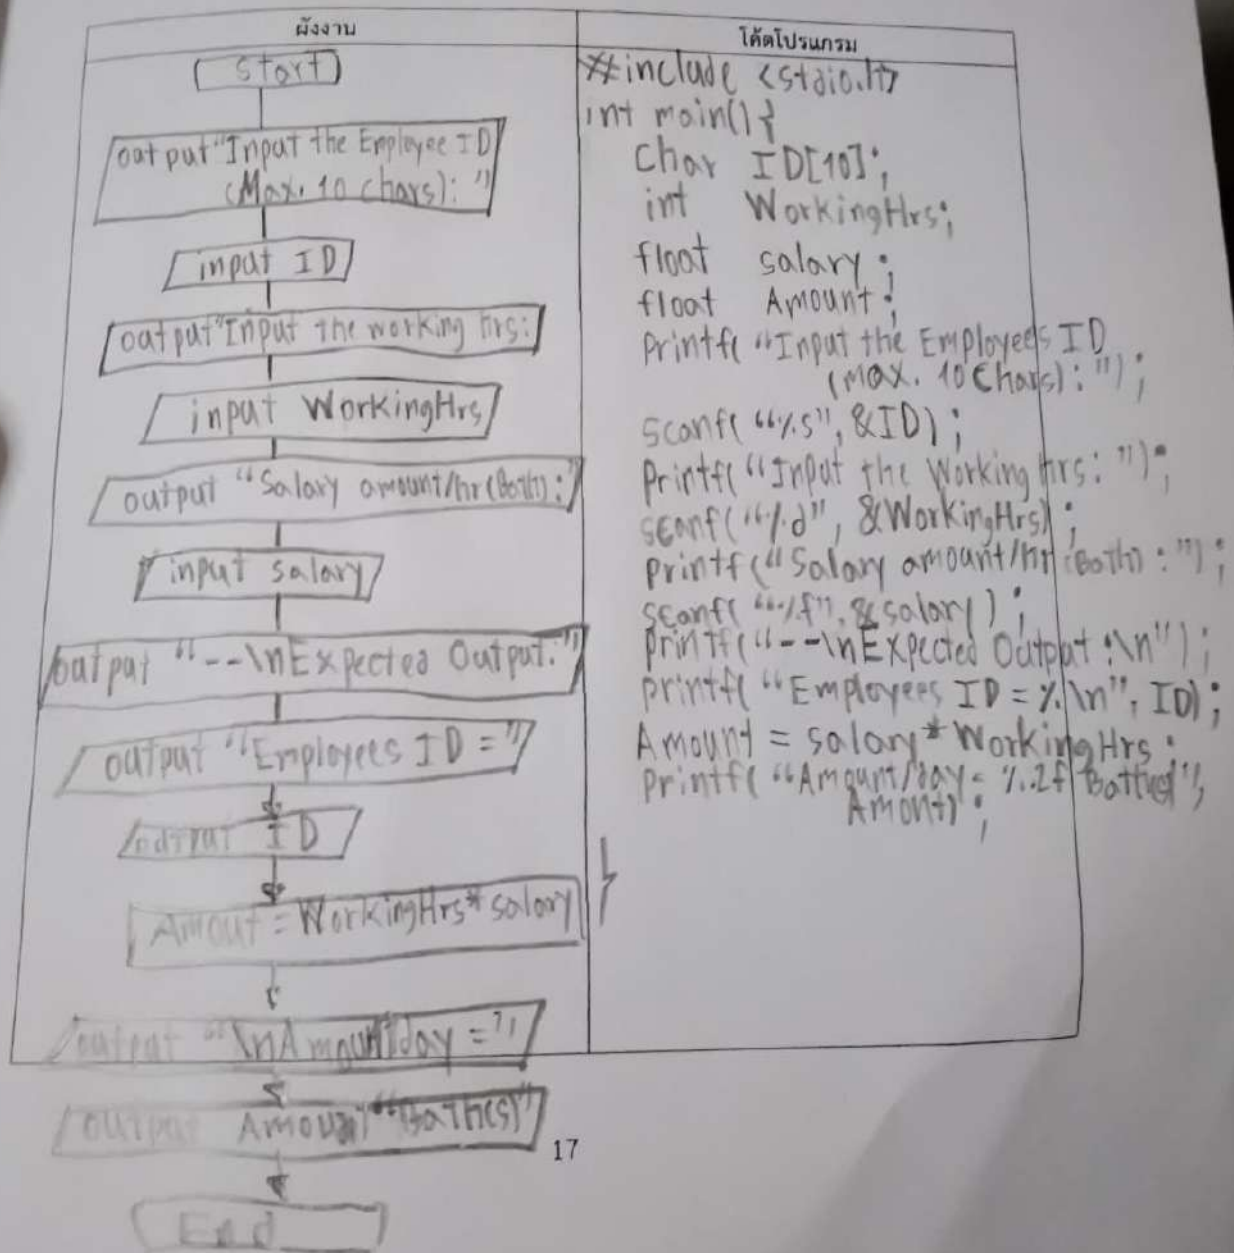 ผังงาน
start
output "Input the Employee ID
(Max. 10 chars): "
input ID
output "Input the working hrs:
input WorkingHrs
output "Salary amount/hr(Bath):"
input salary
output "--\nExpected Output:"
output "Employees ID ="
output ID
Amout = WorkingHrs* salary
output "\nAmount/day ="
output Amount "Bath(s)"
End
โค้ดโปรแกรม
#include <stdio.h>
int main(){
char ID[10];
int WorkingHrs;
float salary;
float Amount;
printf( "Input the Employees ID
(Max. 10 Chars): ");
scanf( "%s", &ID);
printf( "Input the Working hrs: ");
scanf("%d", &WorkingHrs);
printf("Salary amount/hr (Bath) : ");
scanf( "%f", &salary);
printf("--\nExpected Output :\n");
printf( "Employees ID = %.\n", ID);
Amount = salary * WorkingHrs;
printf( "Amount/day = %.2f
Amont);
}
17